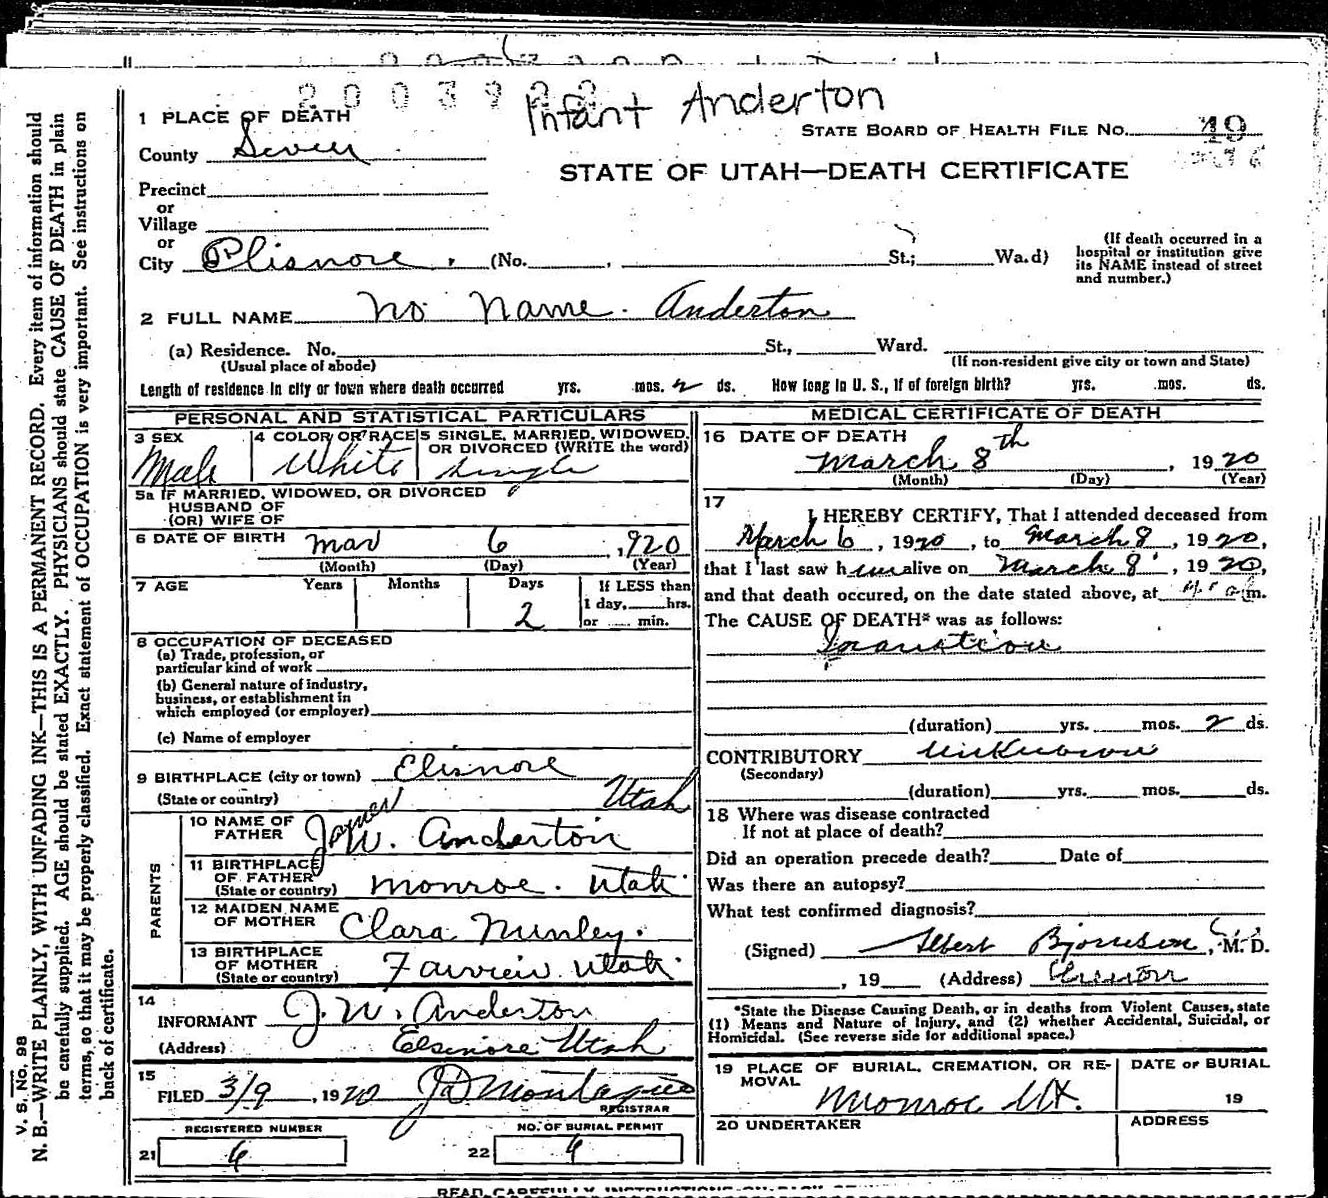 Infant Anderton
1 PLACE OF DEATH
STATE BOARD OF HEALTH FILE No. 49
County Sevier
STATE OF UTAH—DEATH CERTIFICATE
Precinct
or
Village
or
City Elisnore. (No. , St.; Wa.d)
(If death occurred in a
hospital or institution give
its NAME instead of street
and number.)
2 FULL NAME No Name. Anderton
(a) Residence. No. St., Ward.
(Usual place of abode)
(If non-resident give city or town and State)
Length of residence in city or town where death occurred yrs. mos. 2 ds. How long in U. S., if of foreign birth? yrs. mos. ds.
PERSONAL AND STATISTICAL PARTICULARS
3 SEX
4 COLOR OR RACE
5 SINGLE, MARRIED, WIDOWED,
OR DIVORCED (WRITE the word)
Male White Single
5a IF MARRIED, WIDOWED, OR DIVORCED
HUSBAND OF
(OR) WIFE OF
6 DATE OF BIRTH Mar 6, 1920
(Month) (Day) (Year)
7 AGE Years Months Days
If LESS than
1 day, hrs.
or min.
2
8 OCCUPATION OF DECEASED
(a) Trade, profession, or
particular kind of work
(b) General nature of industry,
business, or establishment in
which employed (or employer)
(c) Name of employer
9 BIRTHPLACE (city or town) Elisnore
(State or country) Utah
PARENTS
10 NAME OF
FATHER James W. Anderton
11 BIRTHPLACE
OF FATHER
(State or country) Monroe. Utah
12 MAIDEN NAME
OF MOTHER Clara Nunley.
13 BIRTHPLACE
OF MOTHER
(State or country) Fairview Utah.
14
INFORMANT J. W. Anderton
(Address) Elsinore Utah
15
FILED 3/9, 1920 J D Montague
REGISTRAR
REGISTERED NUMBER
NO. OF BURIAL PERMIT
21 6
22 6
MEDICAL CERTIFICATE OF DEATH
16 DATE OF DEATH
March 8th, 1920
(Month) (Day) (Year)
17
I HEREBY CERTIFY, That I attended deceased from
March 6, 1920, to March 8, 1920,
that I last saw him alive on March 8, 1920,
and that death occured, on the date stated above, at m.
The CAUSE OF DEATH* was as follows:
Inanition
(duration) yrs. mos. 2 ds.
CONTRIBUTORY Unknown
(Secondary)
(duration) yrs. mos. ds.
18 Where was disease contracted
If not at place of death?
Did an operation precede death? Date of
Was there an autopsy?
What test confirmed diagnosis?
(Signed) Albert Bjornson, M. D.
, 19 (Address)
*State the Disease Causing Death, or in deaths from Violent Causes, state
(1) Means and Nature of Injury, and (2) whether Accidental, Suicidal, or
Homicidal. (See reverse side for additional space.)
19 PLACE OF BURIAL, CREMATION, OR RE-
MOVAL
Monroe Ut.
DATE OF BURIAL
19
20 UNDERTAKER
ADDRESS
V. S. No. 98
N. B.—WRITE PLAINLY, WITH UNFADING INK—THIS IS A PERMANENT RECORD. Every item of information should
be carefully supplied. AGE should be stated EXACTLY. PHYSICIANS should state CAUSE OF DEATH in plain
terms, so that it may be properly classified. Exact statement of OCCUPATION is very important. See instructions on
back of certificate.